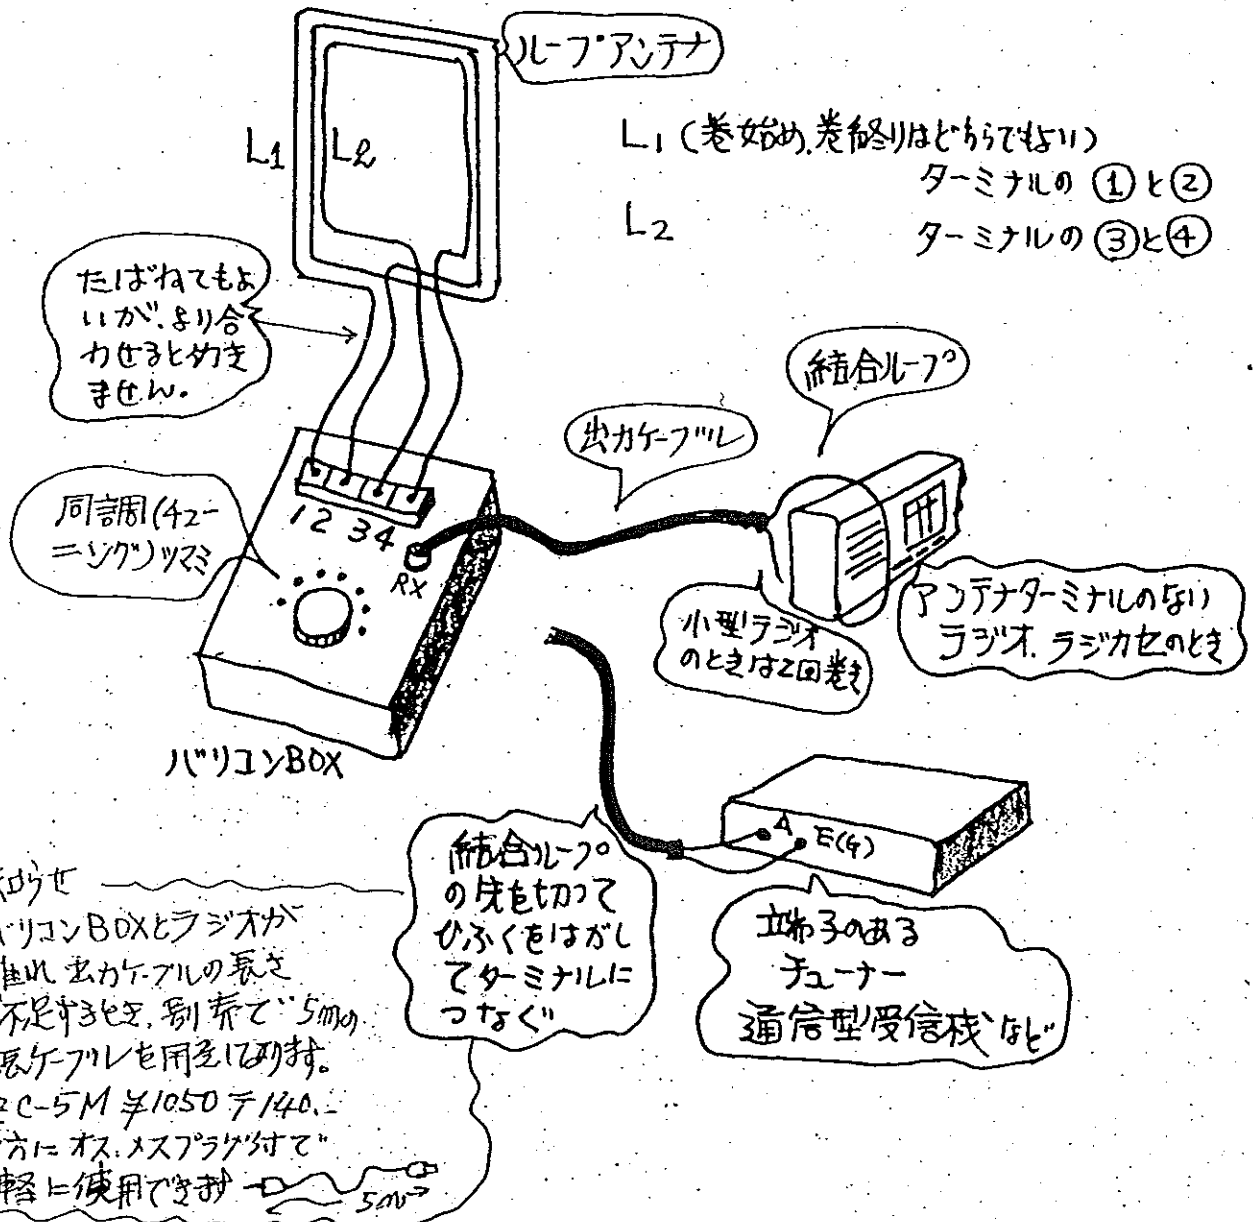 ループアンテナ
L1
L2
L1 (巻始め、巻終りはどちらでもよい)
ターミナルの ① と ②
L2
ターミナルの ③と④
たばねてもよ
いが、より合
わせると効き
ません。
結合ループ
出力ケーブル
同調(チュー
ニング)ツマミ
1 2 3 4
RX
小型ラジオ
のときは2回巻き
アンテナターミナルのない
ラジオ、ラジカセのとき
バリコンBOX
A
E(G)
結合ループ
の先を切って
ひふくをはがし
てターミナルに
つなぐ
端子のある
チューナー
通信型受信機など
知らせ
バリコンBOXとラジオが
離れ出力ケーブルの長さ
不足するとき、別売で5mの
長ケーブルを用意してあります。
C-5M ¥1050 〒140.-
方にオス、メスプラグ付で
軽に使用できます
5m